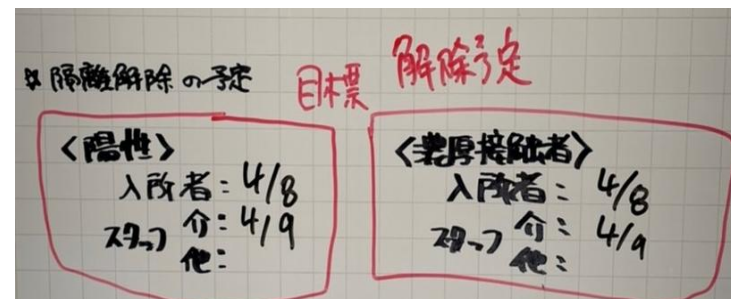 ※隔離解除の予定
目標 解除予定
〈陽性〉
入所者：4/8
スタッフ 介：4/9
他：
〈濃厚接触者〉
入所者：4/8
スタッフ 介：4/9
他：